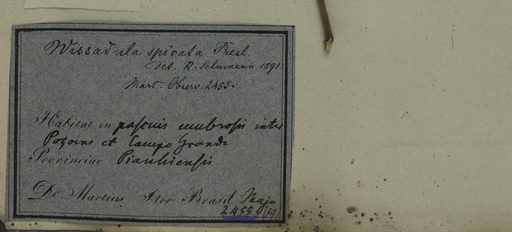 Wissadula spicata Presl.
det. K. Schumann 1891
Mart. Observ. 2455.
Habitat in pascuis umbrosis inter
et Campo Grande
Provinciae Piauhiensis
Dr. Martius Iter Brasil. Majo
2455